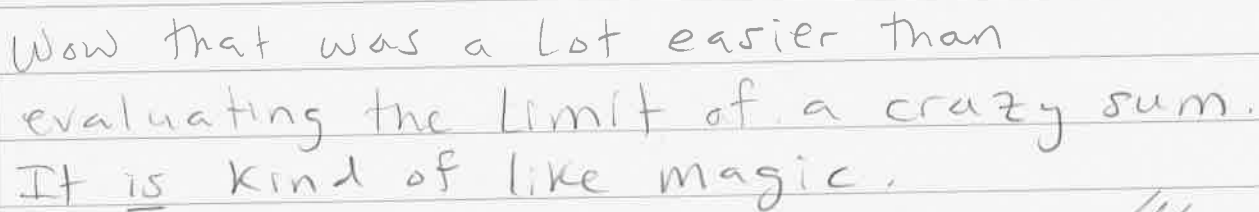 Wow that was a lot easier than
evaluating the limit of a crazy sum.
It is kind of like magic.